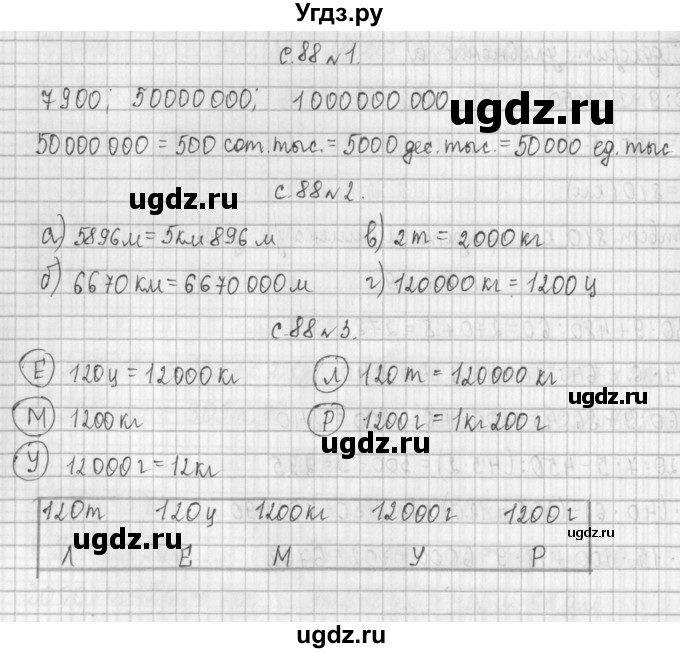 Угдз.ру
с.88 №1.
7900; 50000000; 1000000000
ugdz.ru
50000000 = 500 сот.тыс. = 5000 дес.тыс. = 50000 ед.тыс
ugdz.ru
с.88 №2.
ugdz.ru
а) 5896 м = 5 км 896 м в) 2 т = 2000 кг
б) 6670 км = 6670 000 м г) 120000 кг = 1200 ц
с.88 №3.
Е 120 ц = 12000 кг Л 120 т = 120000 кг
ugdz.ru
М 1200 кг Р 1200 г = 1 кг 200 г
ugdz.ru
У 12000 г = 12 кг
120т 120ц 1200кг 12000г 1200г
ugdz.ru
ugdz.ru
Л Е М У Р
ugdz.ru